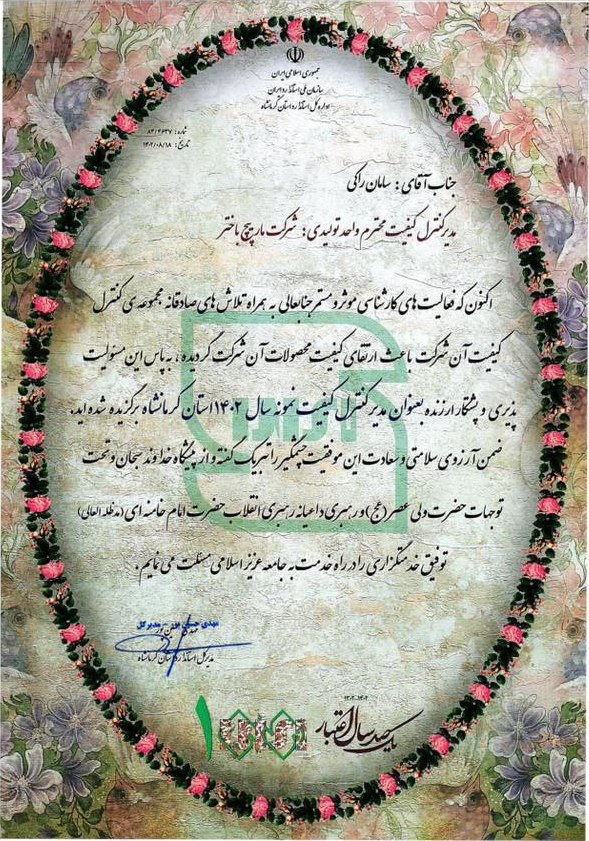 جمهوری اسلامی ایران
سازمان ملی استاندارد ایران
اداره کل استاندارد استان کرمانشاه
شماره: ۸۴/۴۶۳۷
تاریخ: ۱۴۰۲/۰۸/۱۸
جناب آقای: سامان راکی
مدیر کنترل کیفیت محترم واحد تولیدی: شرکت مارپیچ باختر
اکنون که فعالیت های کارشناسی موثر و مستمر جنابعالی به همراه تلاش های صادقانه مجموعه ی کنترل
کیفیت آن شرکت باعث ارتقای کیفیت محصولات آن شرکت گردیده، به پاس این مسئولیت
پذیری و پشتکار ارزنده بعنوان مدیر کنترل کیفیت نمونه سال ۱۴۰۲ استان کرمانشاه برگزیده شده اید.
ضمن آرزوی سلامتی و سعادت این موفقیت چشمگیر را تبریک گفته و از پیشگاه خداوند سبحان و تحت
توجهات حضرت ولی عصر (عج) و رهبری داعیانه رهبری انقلاب حضرت امام خامنه ای (مدظله العالی)
توفیق خدمتگزاری را در راه خدمت به جامعه عزیز اسلامی مسئلت می نمایم.
مهدی حسین افشین پور - مدیر کل
مدیر کل استاندارد استان کرمانشاه
یکصد سال اعتبار